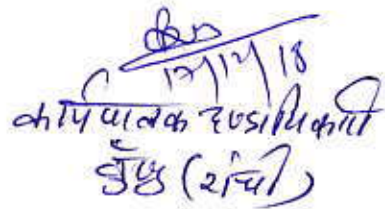 17/12/18
कार्यपालक दण्डाधिकारी
बुँडू (रांची)